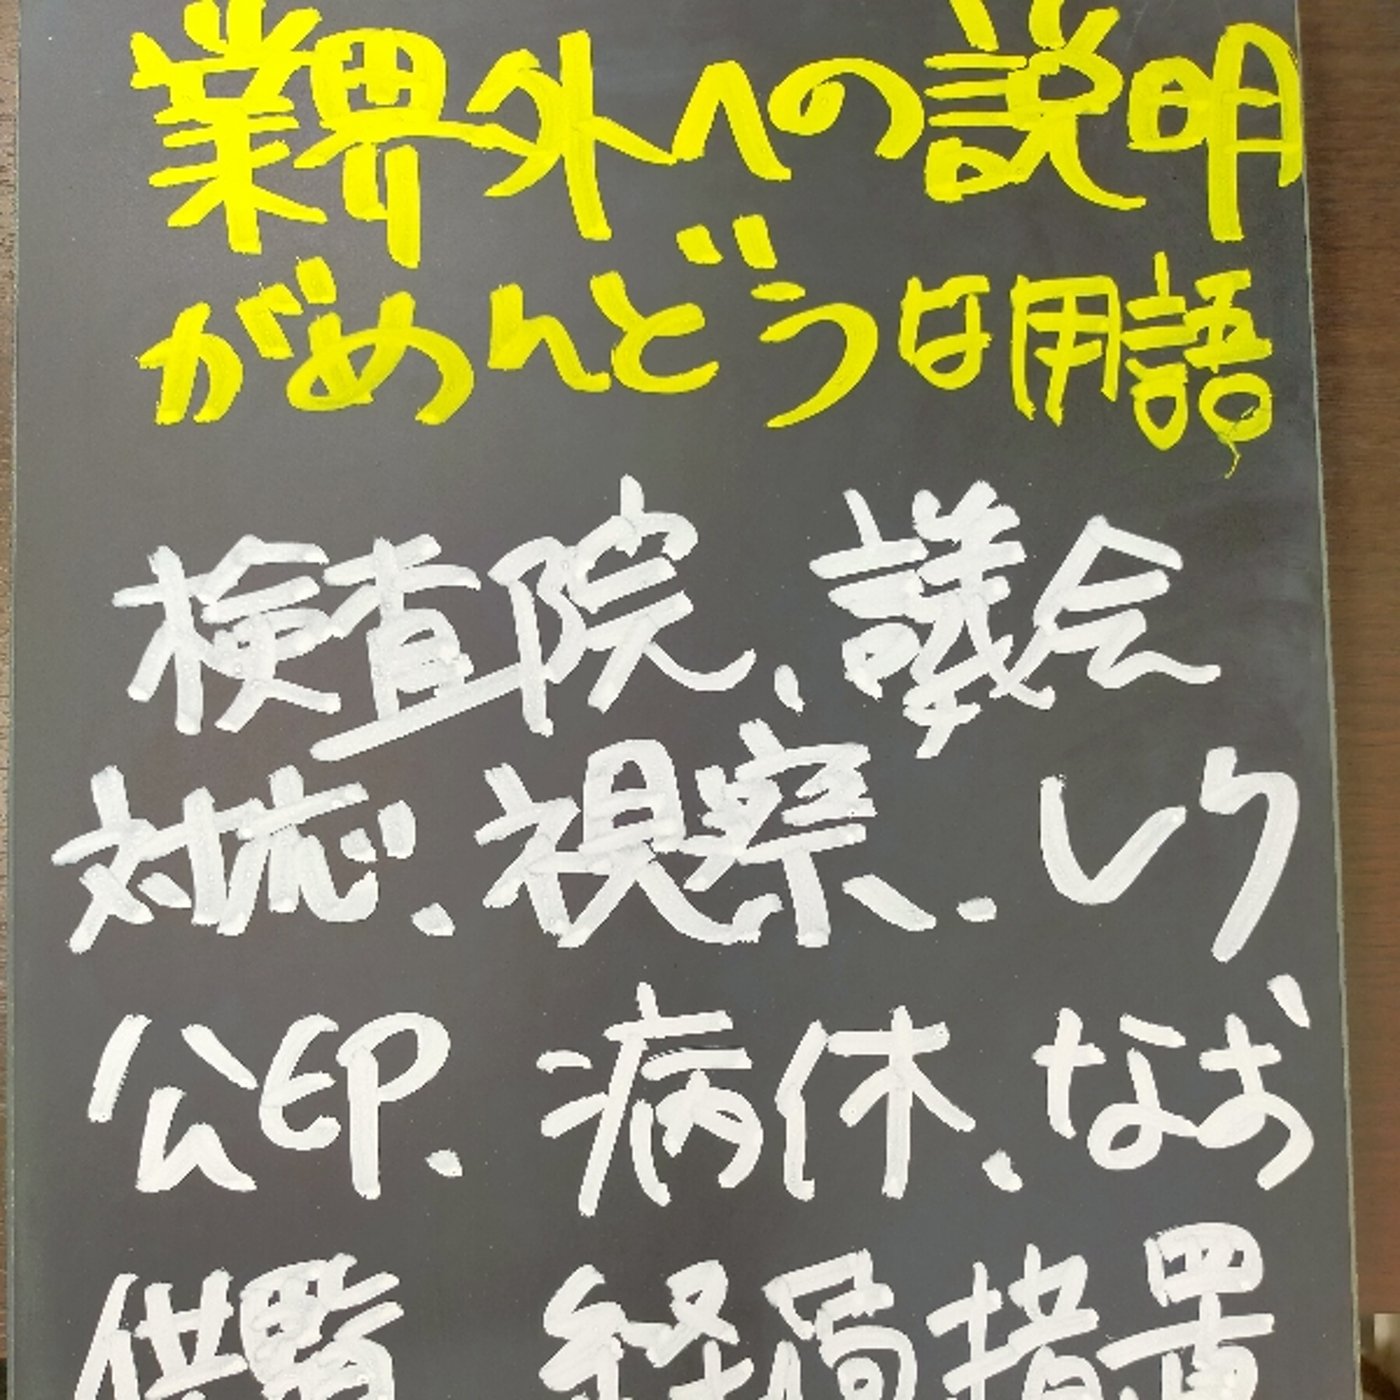 業界外への説明
がめんどうな用語
検査院、議会
対応、視察、レク
公印、病休、なお
供覧 経過措置